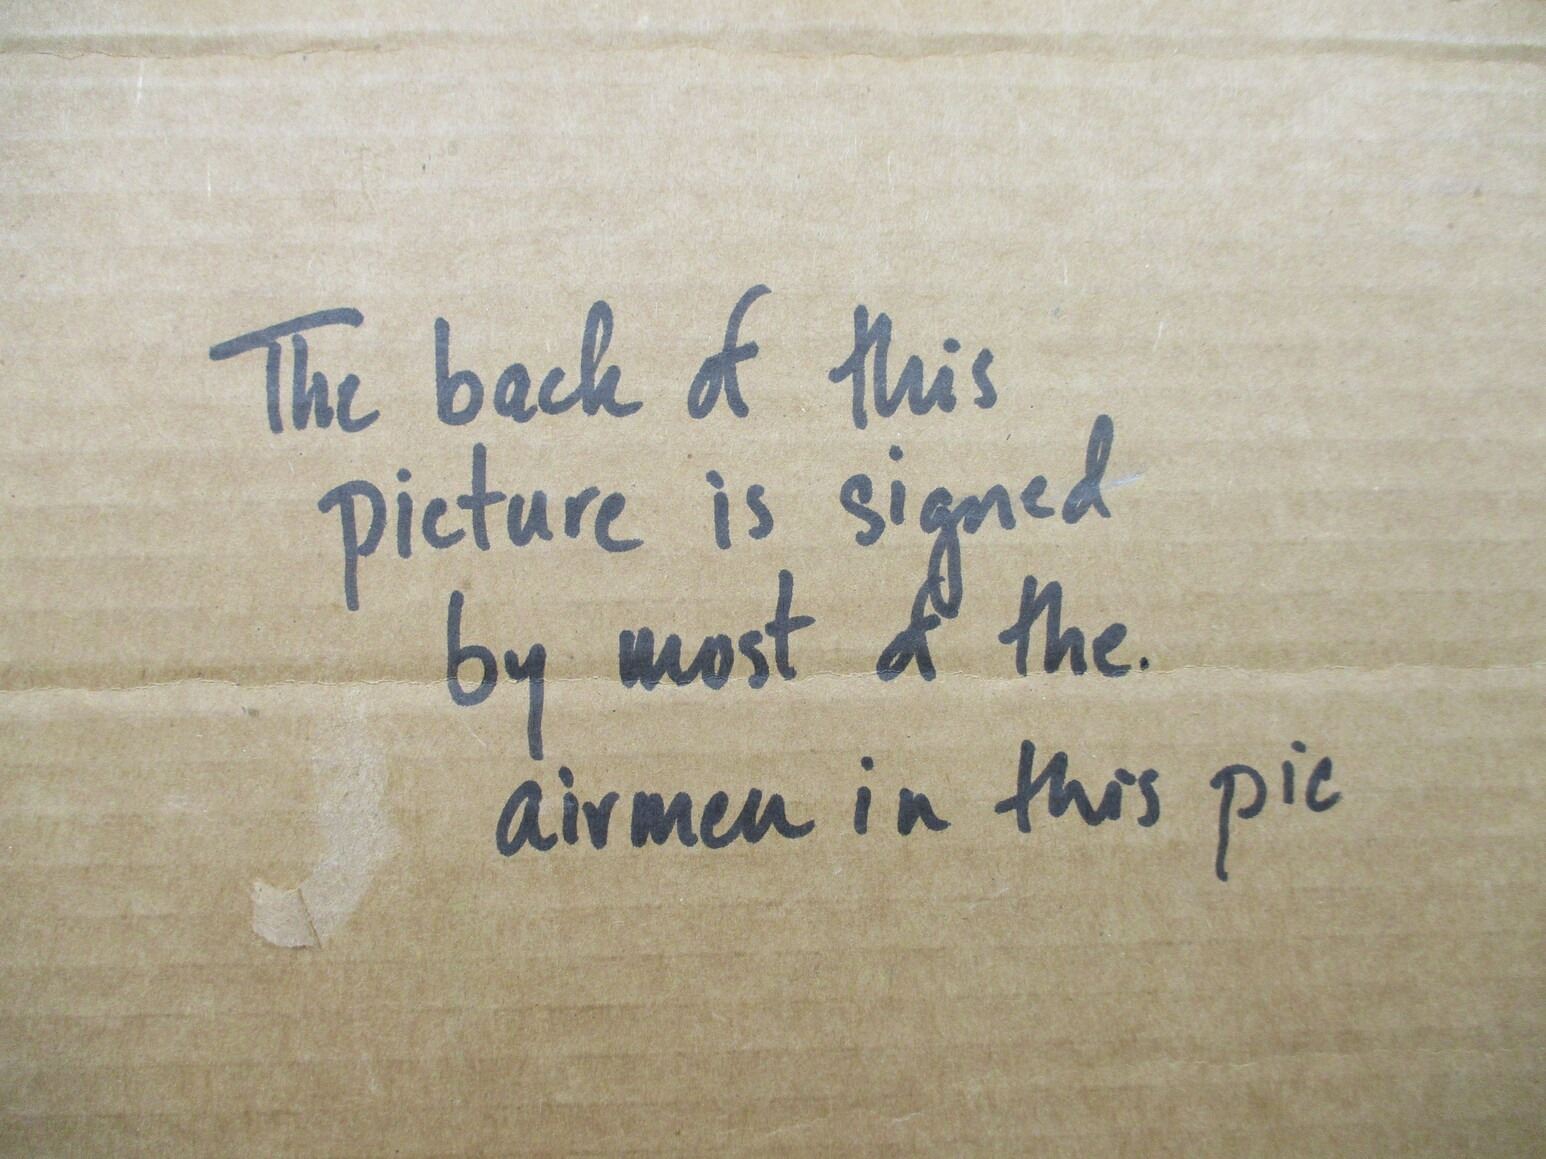 The back of this
picture is signed
by most of the.
airmen in this pic